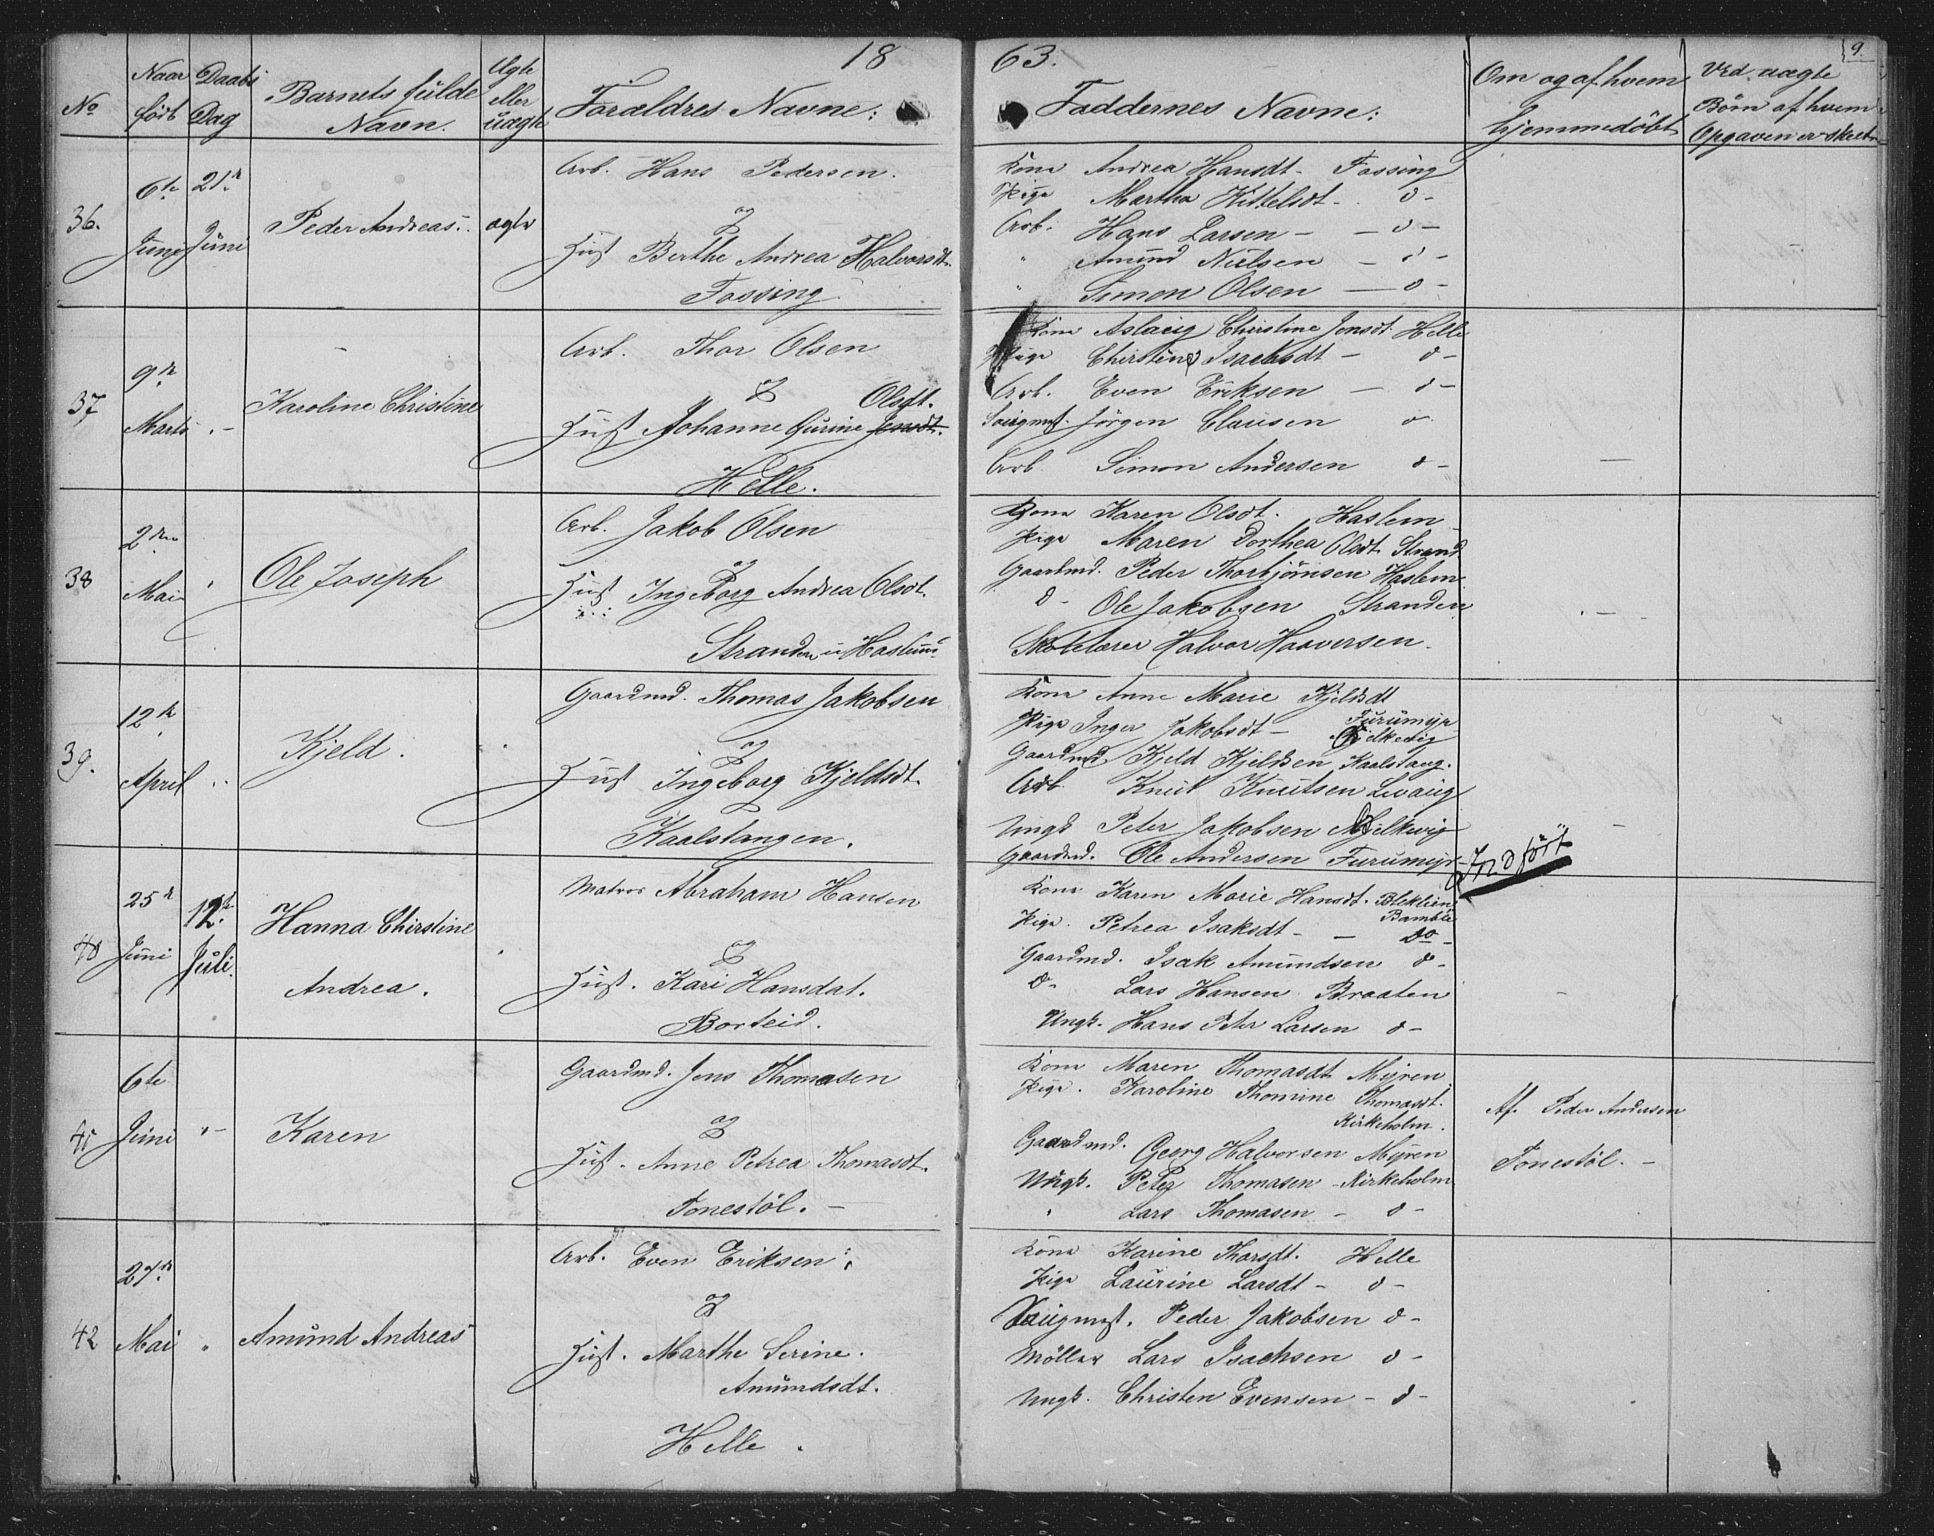 1863.
9.
No
Naar født
Daabs Dag
Barnets fulde Navn.
Ægte eller uægte
Foraldres Navne:
Faddernes Navne:
Om og af hvem hjemmedöbt
Ved uægte Börn af hvem Opgaven er skeet
36.
6te Juni
21. Juni
Peder Andreas.
ægte
Arb. Hans Pedersen.
og
Hust Berthe Andrea Halvorsdt.
Fossing
Kone Andrea Hansdt - Fossing
Pige Martha Kittelsdt - d -
Arb. Hans Larsen - - d -
" Amund Nielsen - d -
" Simon Olsen - d -
37
9de Marts
Karoline Christine
Arb. Thor Olsen
og
Olsdt.
Hust Johanne Gurine Jensdt.
Helle.
Kone Aslaug Christine Jensdt. Helle
Pige Christine Isachsdt - d -
Arb. Even Eriksen - d -
Saugmst. Jörgen Clausen d
Arb. Simon Andersen d -
38
2den Mai
"
Ole Joseph
Arb. Jakob Olsen
og
Hust Ingeborg Andrea Olsdt.
Stranden u Haslum
Kone Karen Olsdt. Haslem
Pige Maren Dorthea Olsdt Strand
Gaardmd. Peder Thorbjörnsen Haslem
d - Ole Jakobsen Stranden
Skolelærer Halvor Haaversen.
39.
12te April
Kjeld.
Gaardmd. Thomas Jakobsen
og
Hust Ingeborg Kjeldsdt.
Kaalstangen.
Kone Anne Marie Kjeldsdt
Furumyr
Pige Inger Jakobsdt -
Gaardmd Kjeld Kjeldsen Kaalstang.
Arb. Knut Knutsen Levaug
Ungk Peter Jakobsen
Gaardmd. Ole Andersen Furumyr
Indfört
40
25de Juni
12te Juli.
Hanna Christine
Andrea.
Matros Abraham Hansen
og
Hust. Kari Hansdat.
Borteid.
Kone Karen Marie Hansdt. Bleklein
Bamble
Pige. Petrea Isaksdt - - Do -
Gaardmd. Isak Amundsen d -
d - Lars Hansen Braaten
Ungk. Hans Peter Larsen d -
41
6te Juni
" -
Karen
Gaardmd. Jens Thomasen
og
Hust. Anne Petrea Thomasdt.
Tonestöl. -
Kone Maren Thomasdt Myren
Pige. Karoline Thomine Thomasdt.
Kirkeholm.
Gaardmd. Georg Halvorsen Myren
Ungk. Peter Thomasen - Kirkeholm
" Lars Thomasen - d -
Af. Peder Andersen
Tonestöl. -
42
27de Mai
"
Amund Andreas
Arb. Even Eriksen
og
Hust. Marthe Serine.
Amundsdt.
Helle.
Kone Karine Thorsdt. Helle
Pige Laurine Larsdt - d -
Saugmst. Peder Jakobsen d -
Möller Lars Isachsen d -
Ungk. Christen Evensen - d -